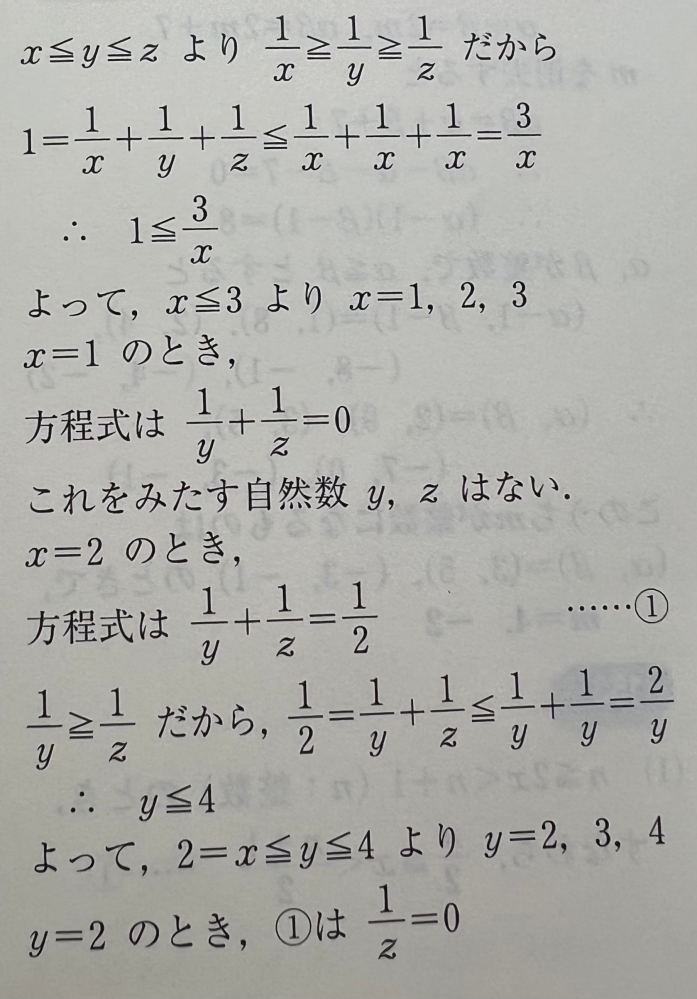 x≦y≦z より 1/x≧1/y≧1/z だから
1=1/x+1/y+1/z≦1/x+1/x+1/x=3/x
∴ 1≦3/x
よって, x≦3 より x=1, 2, 3
x=1 のとき,
方程式は 1/y+1/z=0
これをみたす自然数 y, z はない.
x=2 のとき,
方程式は 1/y+1/z=1/2 ……①
1/y≧1/z だから, 1/2=1/y+1/z≦1/y+1/y=2/y
∴ y≦4
よって, 2=x≦y≦4 より y=2, 3, 4
y=2 のとき, ①は 1/z=0